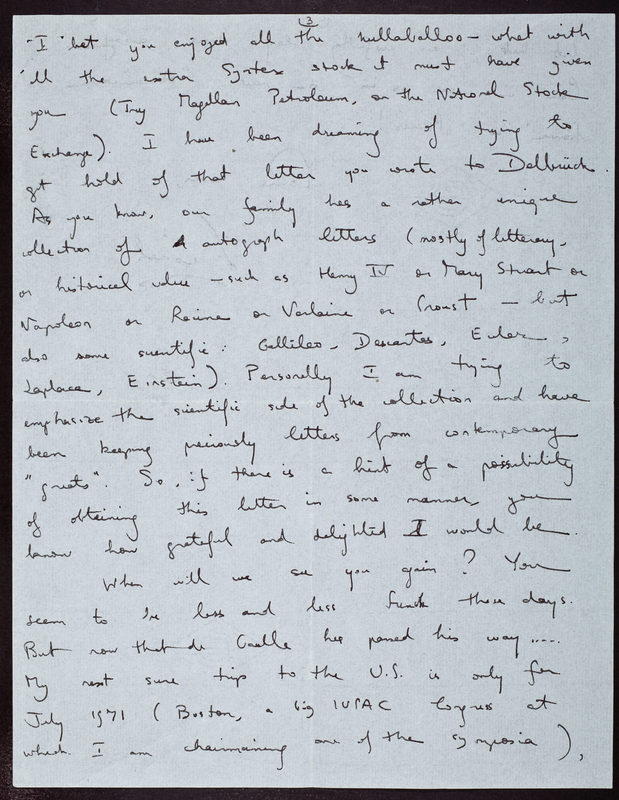 (3)
"I bet you enjoyed all the hullaballoo – what with
all the extra Syntex stock it must have given
you (Try Magellan Petroleum, on the National Stock
Exchange). I have been dreaming of trying to
get hold of that letter you wrote to Delbrück.
As you know, our family has a rather unique
collection of autograph letters (mostly of litterary,
or historical value – such as Henry IV or Mary Stuart or
Napoleon or Racine or Verlaine or Proust – but
also some scientific: Gallileo, Descartes, Euler,
Laplace, Einstein). Personally I am trying to
emphasize the scientific side of the collection and have
been keeping preciously letters from contemporary
"greats". So, if there is a hint of a possibility
of obtaining this letter in some manner, you
know how grateful and delighted I would be.
When will we see you again? You
seem to be less and less french these days.
But now that de Gaulle has passed his way .....
My next sure trip to the U.S. is only for
July 1971 (Boston, a big IUPAC Congress at
which I am chairmaning one of the symposia),